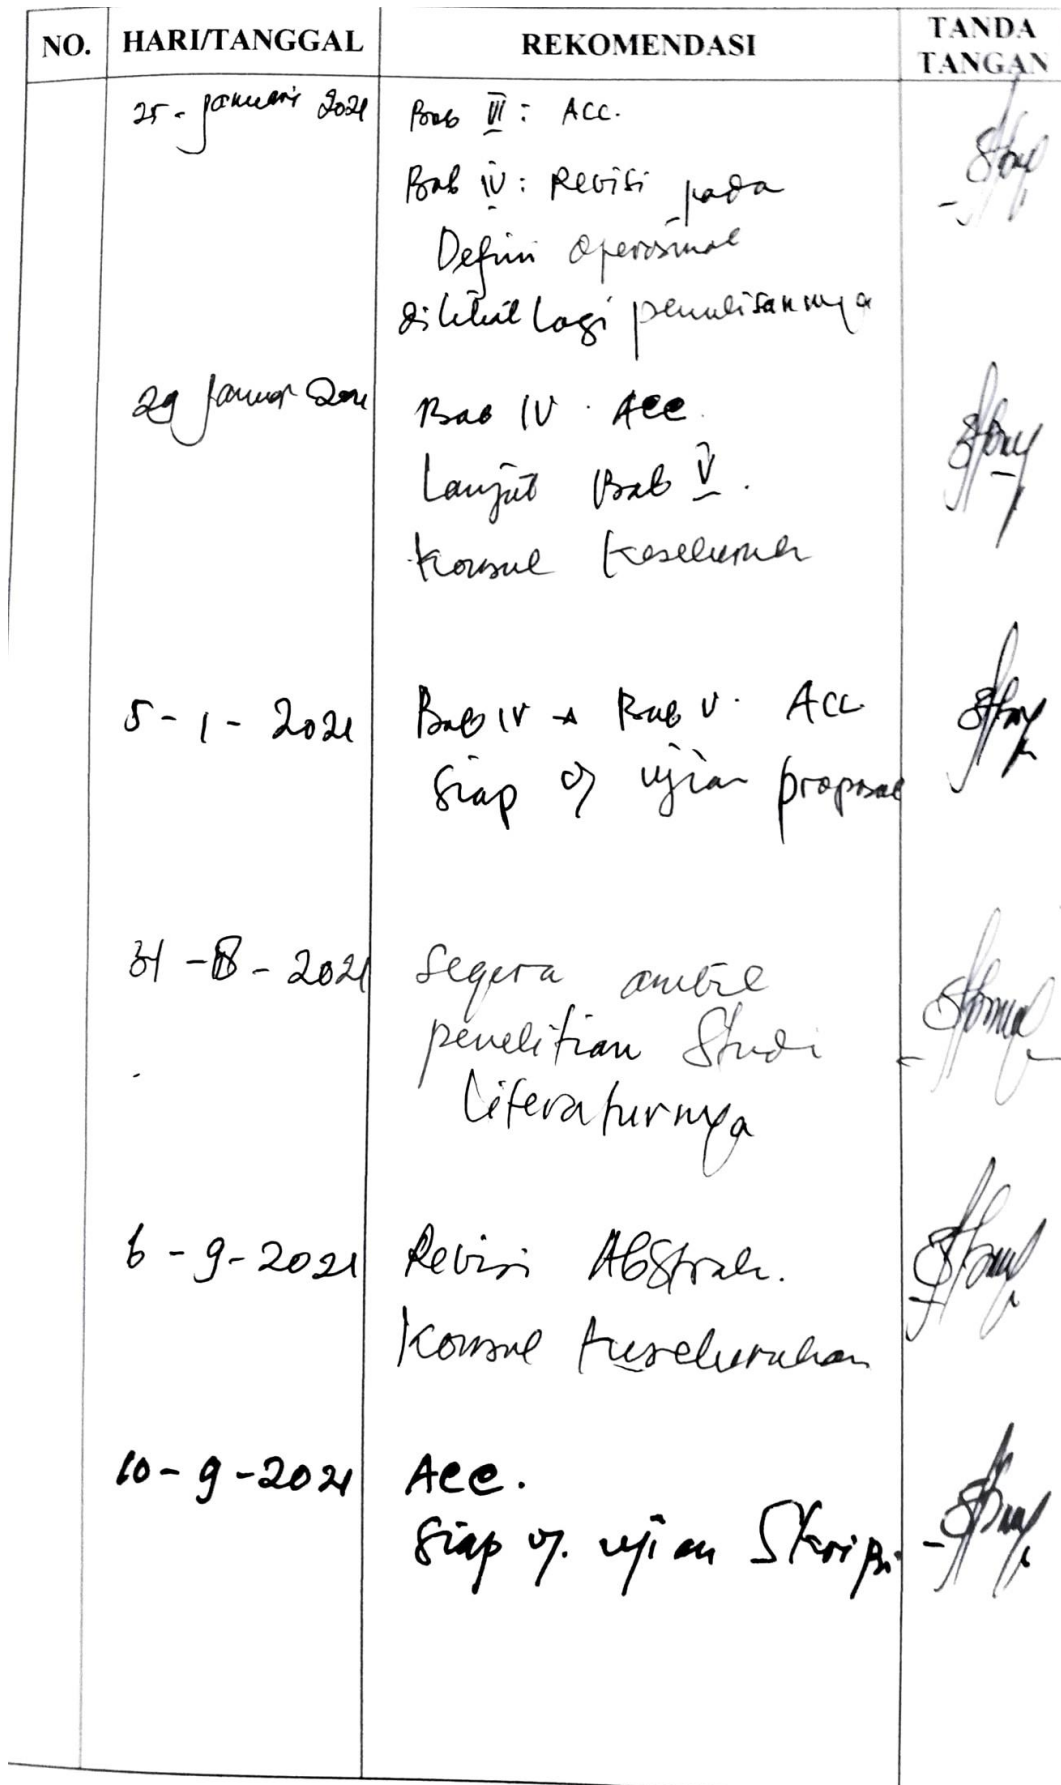 NO. HARI/TANGGAL REKOMENDASI TANDA TANGAN
25 - Januari 2021 Bab III : ACC.
Bab IV : Revisi pada
Defini operasional
dilihat lagi penulisannya
29 Januar 2021 Bab IV . Acc.
Lanjut Bab V.
Konsul keseluruh
5 - 1 - 2021 Bab IV Bab V. ACC
Siap ujian proposal
31 - 8 - 2021 Segera ambil
penelitian Studi
Literaturnya
6 - 9 - 2021 Revisi Abstrak.
Konsul keseluruhan
10 - 9 - 2021 Acc.
Siap ujian Skripsi